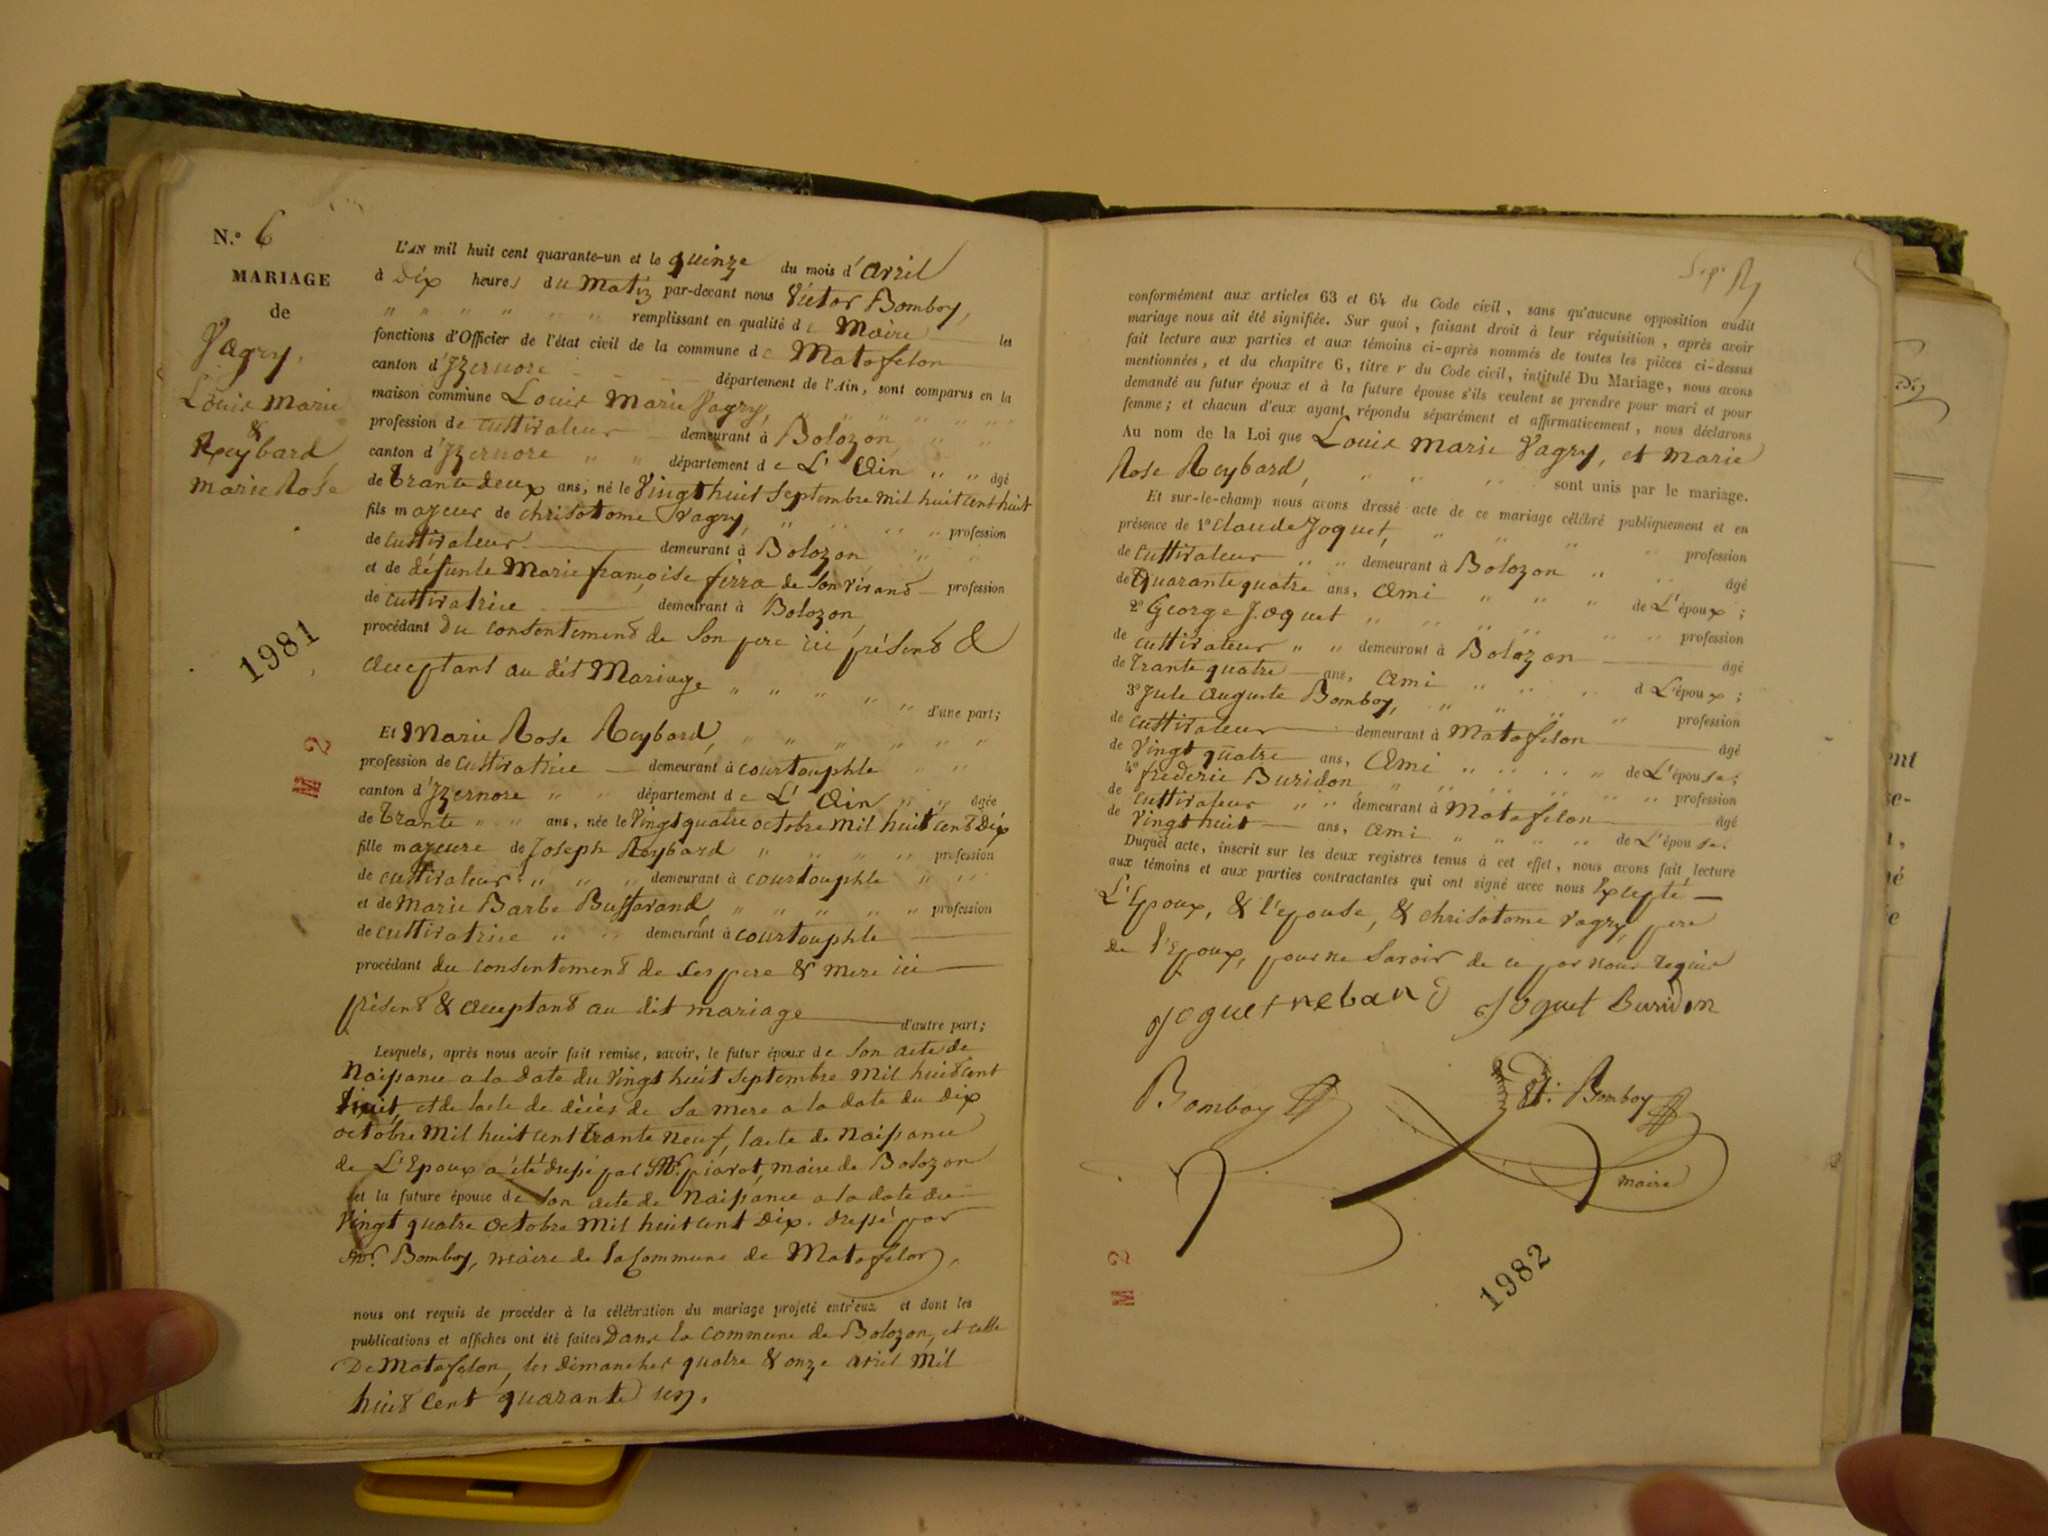 N.° 6
MARIAGE
de
Vagry,
Louis Marie
&
Reybard
marie Rose
1981
M 2
L'AN mil huit cent quarante-un et le quinze du mois d'avril
à Dix heures du Matin par-devant nous Victor Bomboy,
" " " " " " remplissant en qualité de Maire les
fonctions d'Officier de l'état civil de la commune de Matafelon
canton d'Izernore département de l'Ain, sont comparus en la
maison commune Louis Marie Vagry, " " " "
profession de cultivateur demeurant à Bolozon " "
canton d'Izernore " " département de L'Ain " " âgé
de trante deux ans; né le Vingt huit Septembre mil huit cent huit
fils majeur de chrisotome Vagry, " " " " profession
de cultivateur demeurant à Bolozon " "
et de défunte Marie françoise ferra de Son vivant profession
de cultivatrice demeurant à Bolozon
procédant Du consentement de Son pere ici présent &
acceptant au dit Mariage " " " " " d'une part;
Et Marie Rose Reybard, " " " " " "
profession de cultivatrice demeurant à courtouphle " "
canton d'Izernore " " département de L'Ain " " âgée
de trante " " ans, née le Vingt quatre octobre mil huit cent Dix
fille majeure de Joseph Reybard " " " " profession
de cultivateur " " " demeurant à courtouphle " "
et de Marie Barbe Buffavand, " " " " " profession
de cultivatrice " " demeurant à courtouphle
procédant du consentement de ses pere & mere ici
présent & acceptant au dit mariage d'autre part;
Lesquels, après nous avoir fait remise, savoir, le futur époux de Son acte de
Naissance a la Date du Vingt huit Septembre mil huit cent
huit, et de lacte de décès de Sa mere a la date du Dix
octobre mil huit cent trante neuf, lacte de Naissance
de L'Epoux a été dressé par Mr. piarot, maire de Bolozon
et la future épouse de Son acte de Naissance a la date du
Vingt quatre octobre mil huit cent Dix. dressé par
Mr. Bomboy, maire de la Commune de Matafelon,
nous ont requis de procéder à la célébration du mariage projeté entr'eux et dont les
publications et affiches ont été faites Dans la commune de Bolozon, et celle
De Matafelon, les dimanches quatre & onze avril mil
huit cent quarante un.
conformément aux articles 63 et 64 du Code civil, sans qu'aucune opposition audit
mariage nous ait été signifiée. Sur quoi, faisant droit à leur réquisition, après avoir
fait lecture aux parties et aux témoins ci-après nommés de toutes les pièces ci-dessus
mentionnées, et du chapitre 6, titre v du Code civil, intitulé Du Mariage, nous avons
demandé au futur époux et à la future épouse s'ils veulent se prendre pour mari et pour
femme; et chacun d'eux ayant répondu séparément et affirmativement, nous déclarons
Au nom de la Loi que Louis Marie Vagry, et Marie
Rose Reybard, " " " " sont unis par le mariage.
Et sur-le-champ nous avons dressé acte de ce mariage célébré publiquement et en
présence de 1° Claude Joquet, " " " " profession
de cultivateur " " demeurant à Bolozon " " âgé
de Quarante quatre ans, ami " " " de L'époux;
2° George Joquet " " " " " " profession
de cultivateur " " demeurant à Bolozon âgé
de trante quatre ans, ami " " " d L'époux;
3° Jule Auguste Bomboy, " " " " profession
de cultivateur demeurant à Matafelon âgé
de Vingt quatre ans, ami " " " " de L'épouse;
4° frederic Buridon " " " " " " profession
de cultivateur " " demeurant à Matafelon âgé
de Vingt huit ans, ami " " " " de L'épouse.
Duquel acte, inscrit sur les deux registres tenus à cet effet, nous avons fait lecture
aux témoins et aux parties contractantes qui ont signé avec nous Excepté
L'Epoux, & l'epouse, & chrisotome Vagry, pere
de l'Epoux, pour ne Savoir de ce par nous requis
Joquet Buridon
Bomboy
Bomboy
maire
M 2
1982